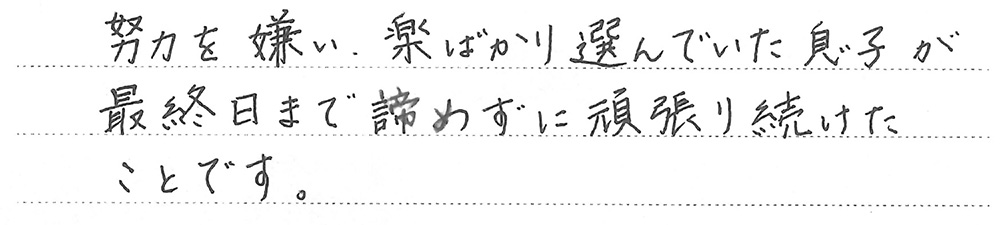 努力を嫌い、楽ばかり選んでいた息子が
最終日まで諦めずに頑張り続けた
ことです。